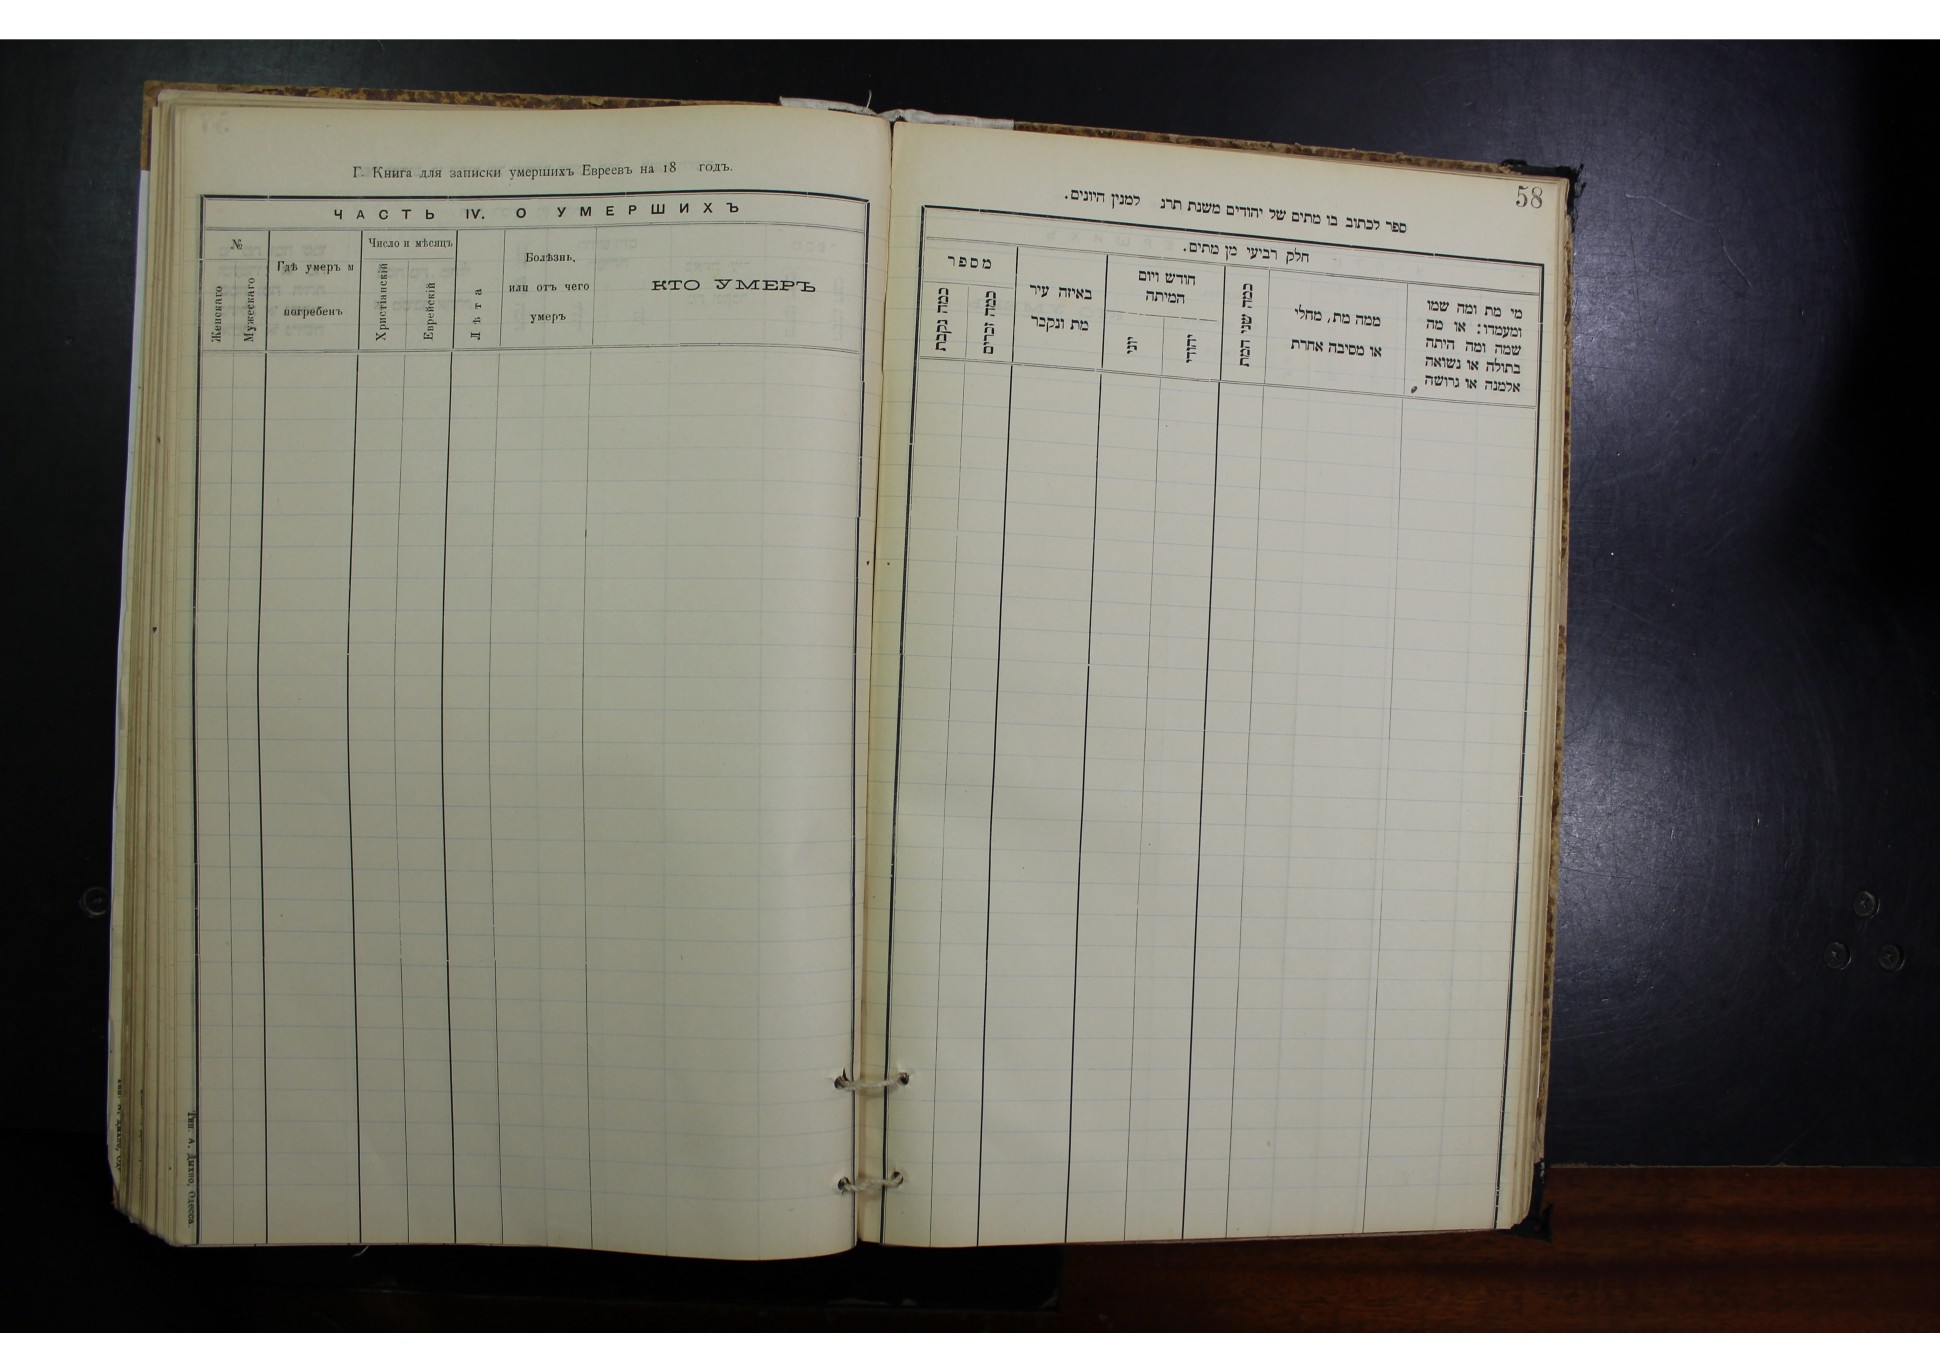 Г. Книга для записки умершихъ Евреевъ на 18 годъ.
ЧАСТЬ IV. О УМЕРШИХЪ
№
Женскаго
Мужескаго
Гдѣ умеръ и
погребенъ
Число и мѣсяцъ
Христіанскій
Еврейскій
Лѣта
Болѣзнь,
или отъ чего
умеръ
КТО УМЕРЪ
Тип. А. Дыхно, Одесса.
58
ספר לכתוב בו מתים של יהודים משנת תרנ למנין היונים.
חלק רביעי מן מתים.
מספר
כמה נקבת
כמה זכרים
באיזה עיר
מת ונקבר
חודש ויום
המיתה
יוני
יהודי
כמה שני המת
ממה מת, מחלי
או מסיבה אחרת
מי מת ומה שמו
ומעמדו: או מה
שמה ומה היתה
בתולה או נשואה
אלמנה או גרושה